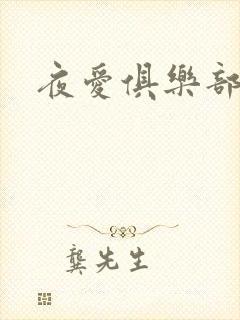 夜愛俱樂部
龔先生